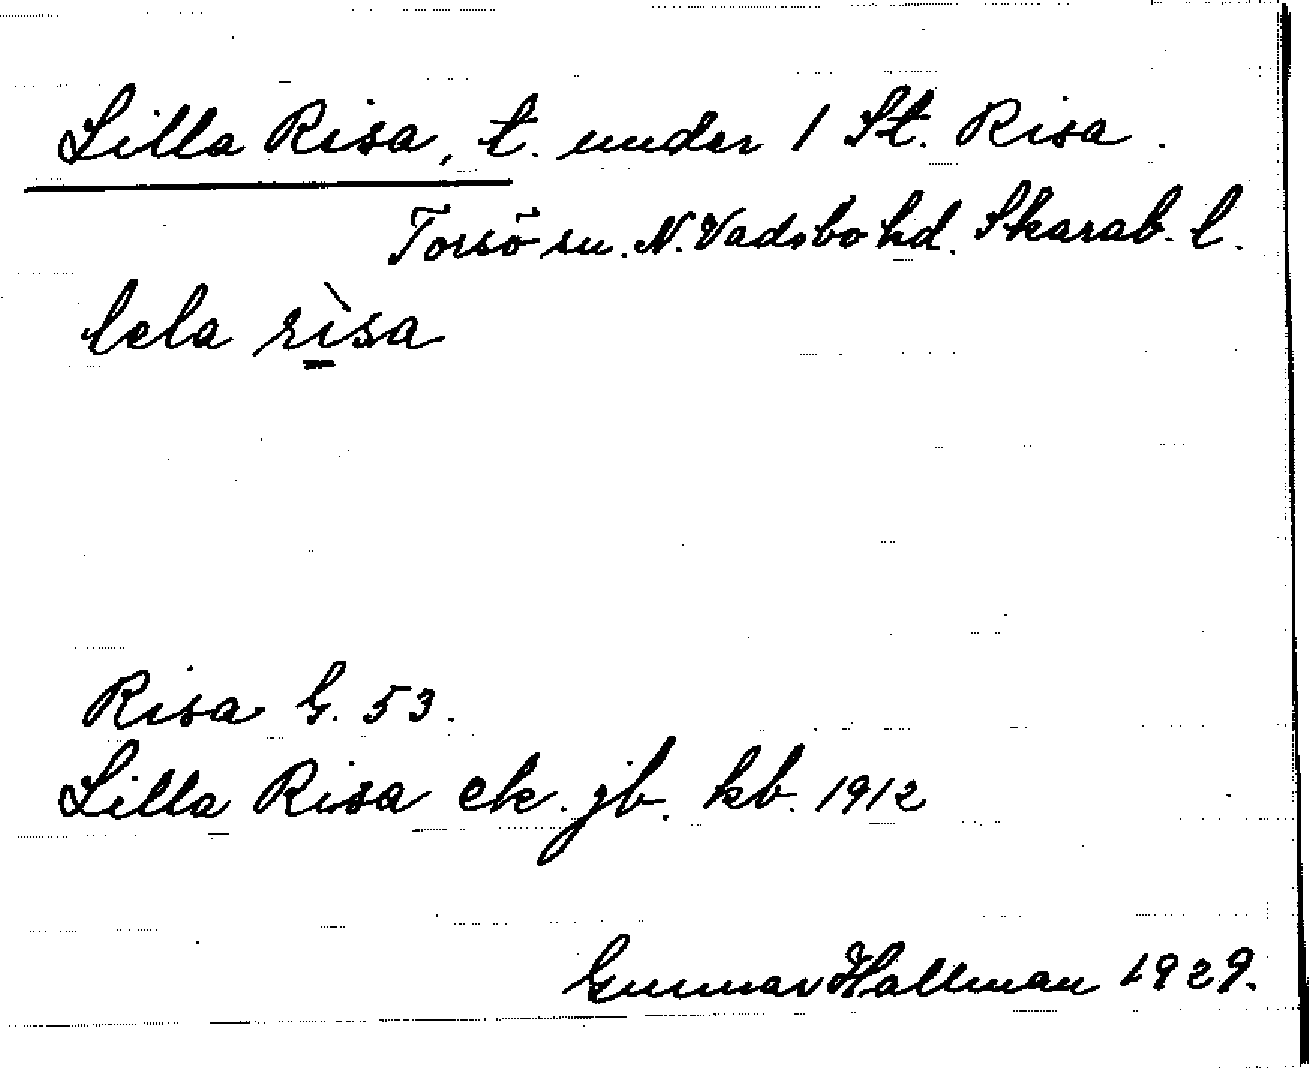 Lilla Risa, t. under 1 St. Risa.
Torsö sn. N. Vadsbo hd. Skarab. l.
lela rìsa
Risa G. 53.
Lilla Risa ek. jb. kb. 1912
Gunnar Hallman 1929.